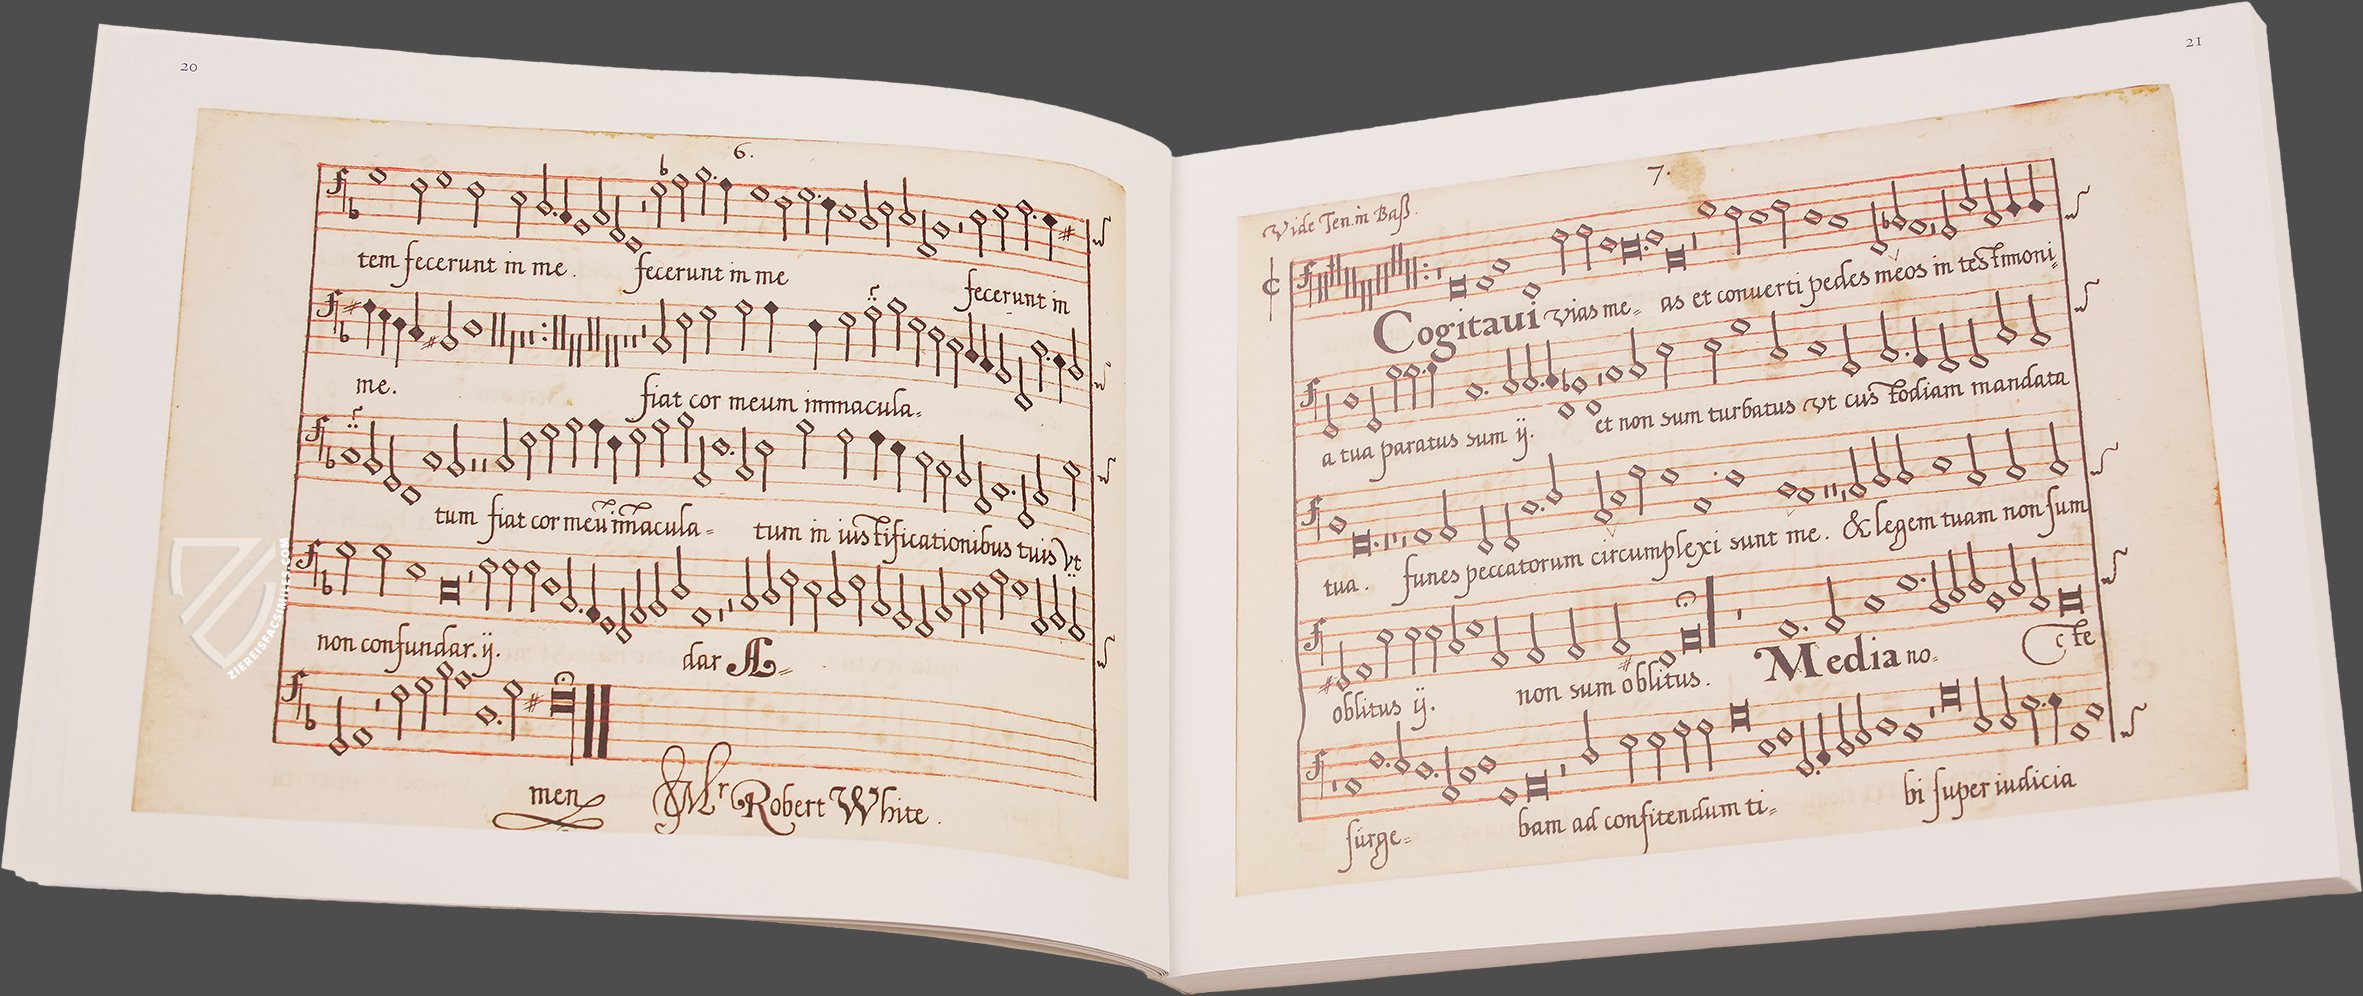 20
6.
tem fecerunt in me . fecerunt in me fecerunt in
me. fiat cor meum immacula=
tum fiat cor meū im̄macula= tum in iustificationibus tuis vt
non confundar. ij. dar A=
men
Mr Robert White .
ZIEREISFACSIMILE.COM
21
7.
Vide Ten. in Baß.
Cogitaui vias me= as et conuerti pedes meos in testimoni=
a tua paratus sum ij. et non sum turbatus vt custodiam mandata
tua . funes peccatorum circumplexi sunt me . & legem tuam non sum
oblitus ij. non sum oblitus . Media no= cte
surge= bam ad confitendum ti= bi super iudicia